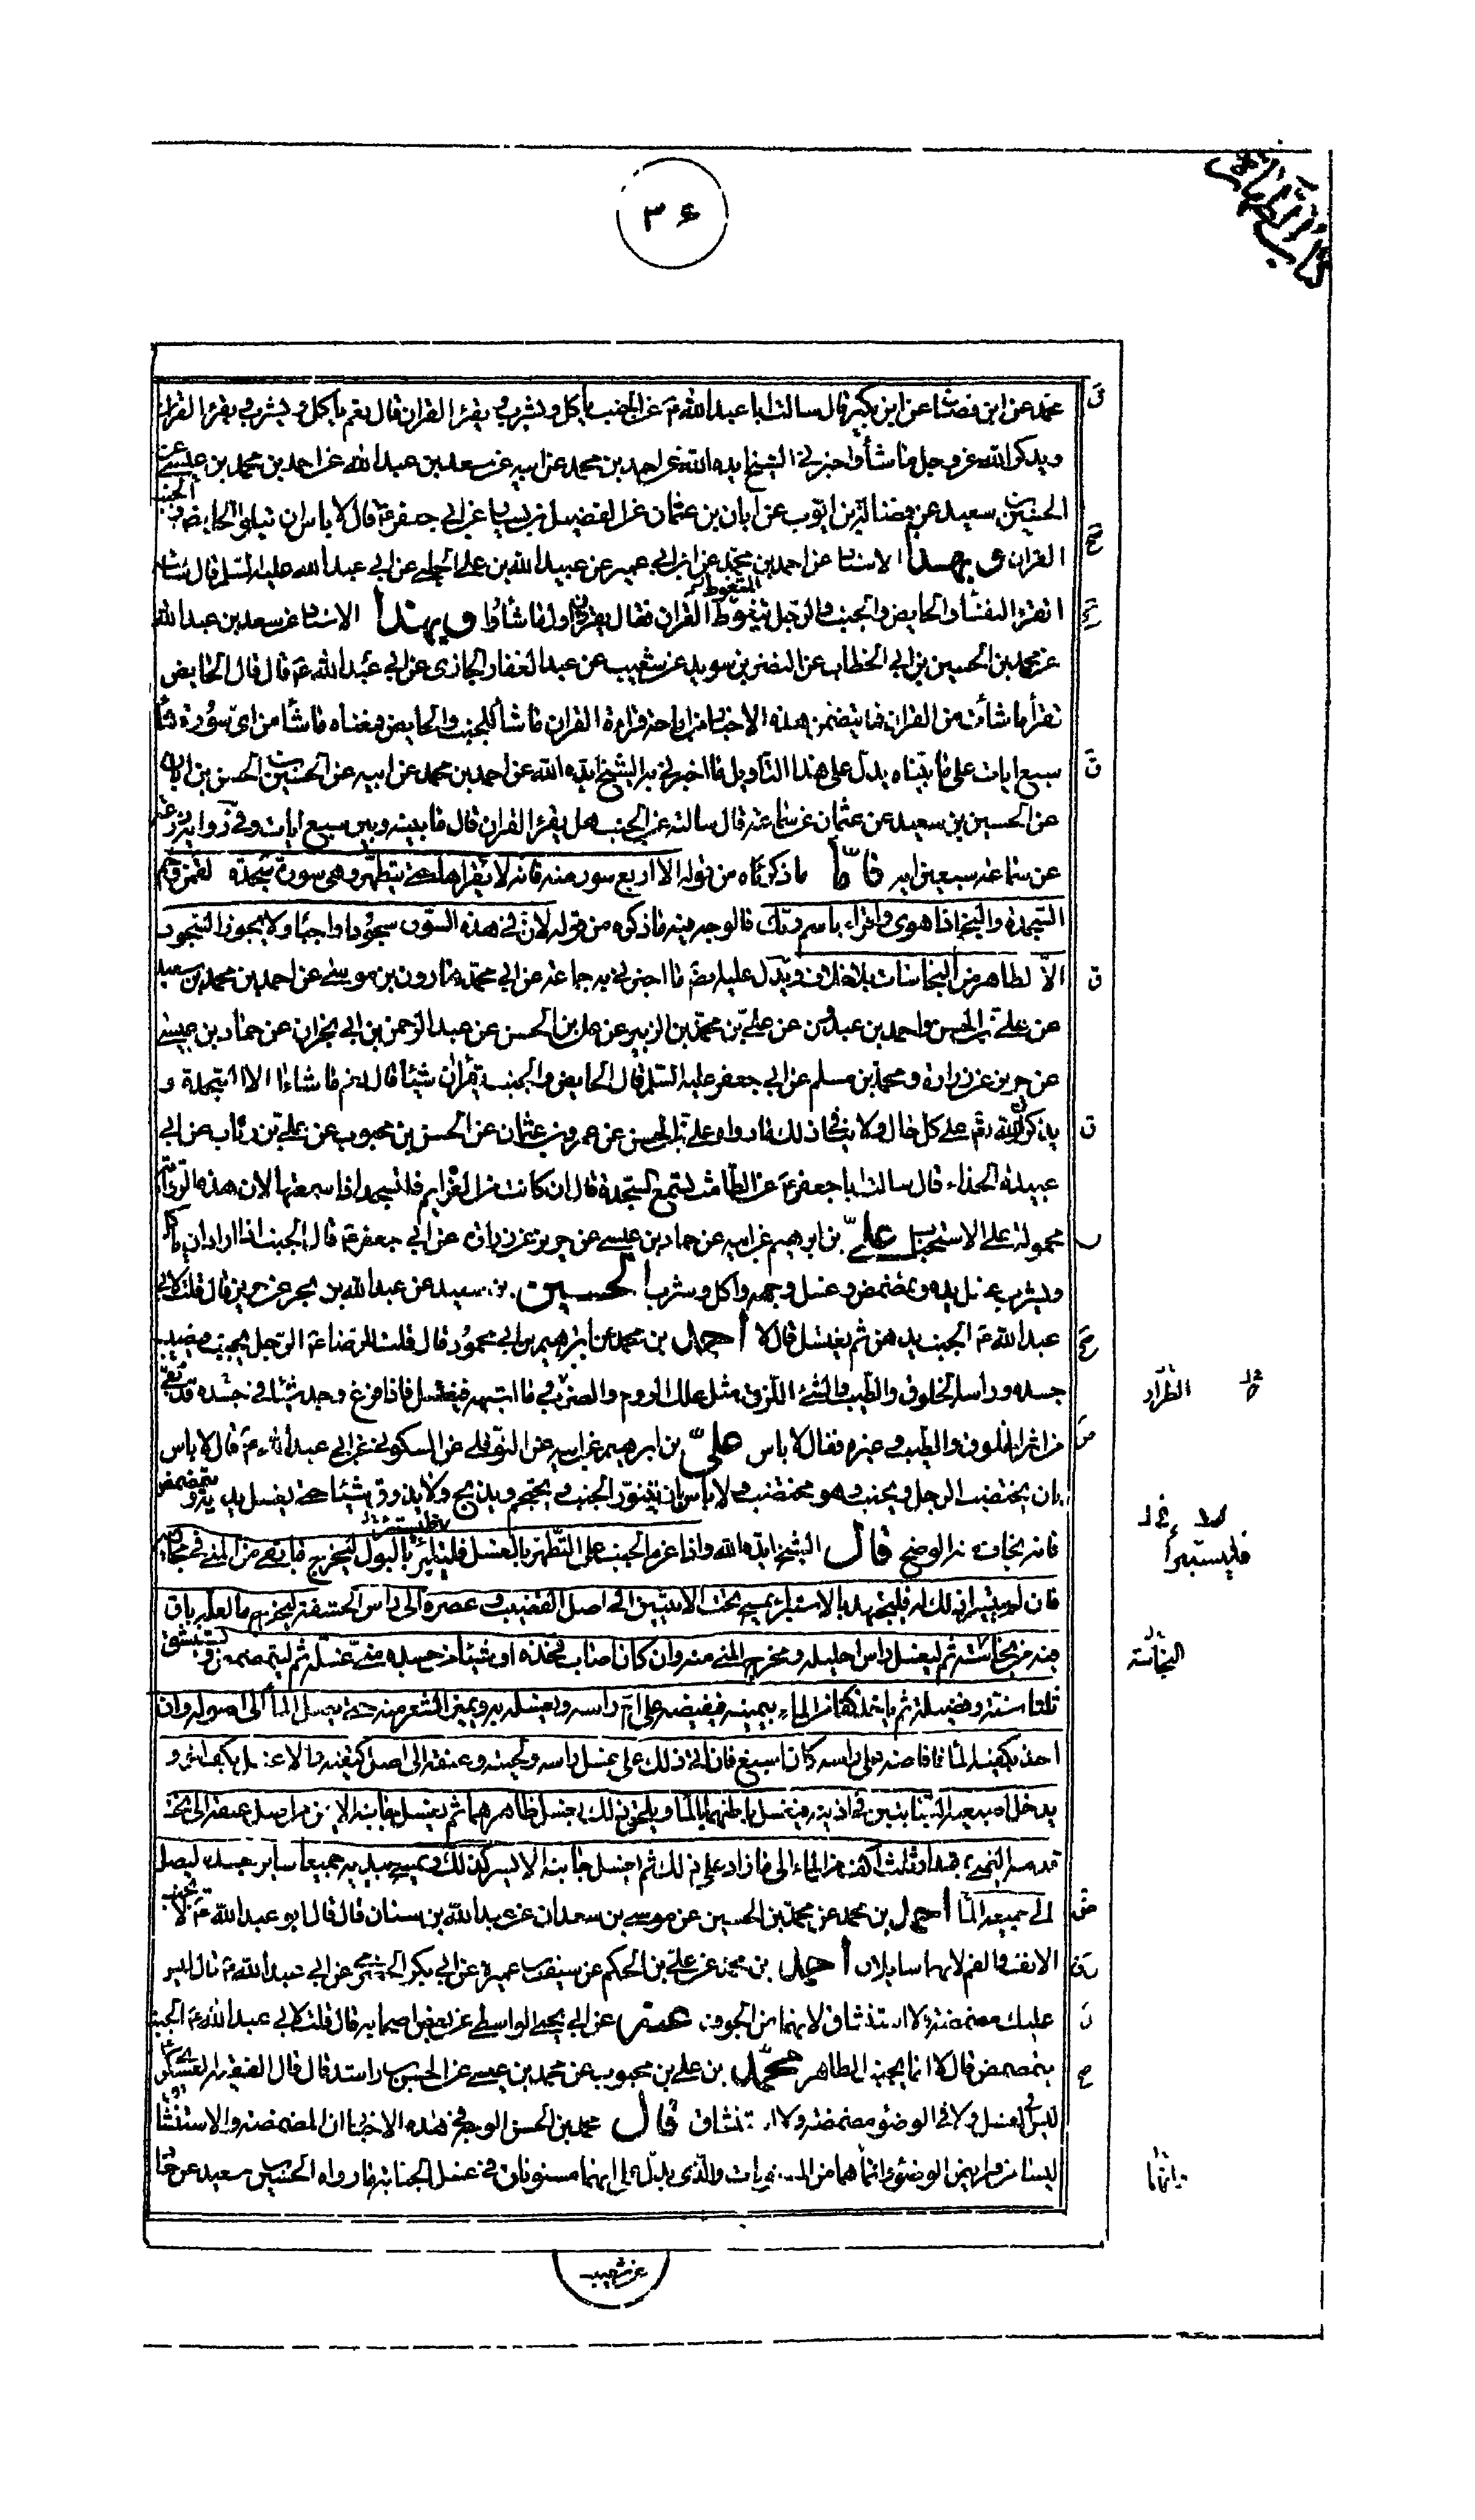 كتاب الطهارة
٣۶
محمد عن ابن فضال عن ابن بكير قال سالت ابا عبد الله ع عن الجنب ياكل ويشرب ويقرء القران قال نعم ياكل ويشرب ويقرء القران
ويذكر الله عز وجل ما شاء واخبرني الشيخ ايده الله عن احمد بن محمد عن ابيه عن سعد بن عبد الله عن احمد بن محمد بن عيسى عن
الحسين بن سعيد عن فضالة بن ايوب عن ابان بن عثمان عن الفضيل بن يسار عن ابي جعفر ع قال لا باس ان تتلو الحايض والجنب
القران وبهذا الاسناد عن احمد بن محمد عن ابن ابي عمير عن عبيد الله بن علي الحلبي عن ابي عبد الله عليه السلم قال سالته
اتقرء النفساء والحايض والجنب والرجل يتغوط القران فقال يقرؤن ما شاؤا وبهذا الاسناد عن سعد بن عبد الله
عن محمد بن الحسين بن ابي الخطاب عن النضر بن سويد عن شعيب عن عبد الغفار الجازى عن ابي عبد الله ع قال قال الحايض
تقرأ ما شاءت من القران فما يتضمن هذه الاخبار من اباحة قراءة القران ما شاء للجنب والحايض معناه ما شاء من اى سورة شاء
سبع ايات على ما بيناه يدل على هذا التاويل ما اخبرني به الشيخ ايده الله عن احمد بن محمد عن ابيه عن الحسين بن الحسن بن ابان
عن الحسين بن سعيد عن عثمان عن سماعة قال سالته عن الجنب هل يقرء القران قال ما بينه وبين سبع ايات وفي رواية زرعة
عن سماعة سبعين اية فاما ما ذكرناه من قوله الا اربع سور منه فانه لا يقراها حتى يتطهر وهى سورة سجدة لقمن وحم
السجدة والنجم اذا هوى واقراء باسم ربك فالوجه فيه ما ذكره من قوله لان في هذه السور سجودا واجبا ولا يجوز السجود
الا لطاهر من النجاسات بلا خلاف ويدل عليه ايضا ما اخبرني به جماعة عن ابي محمد هارون بن موسى عن احمد بن محمد بن سعيد
عن علي بن الحسن واحمد بن عبدون عن علي بن محمد بن الزبير عن علي بن الحسن عن عبد الرحمن بن ابي نجران عن حماد بن عيسى
عن حريز عن زرارة ومحمد بن مسلم عن ابي جعفر عليه السلم قال الحايض والجنب يقرأن شيئا قال نعم ما شاءا الا السجدة و
يذكران الله تعم على كل حال ولا ينافي ذلك ما رواه علي بن الحسن عن عمرو بن عثمان عن الحسن بن محبوب عن علي بن رئاب عن ابي
عبيدة الحذاء قال سالت ابا جعفر ع عن الطامث تسمع السجدة قال ان كانت من العزايم فلتسجد اذا سمعتها لان هذه الرواية
محمولة على الاستحباب علي بن ابرهيم عن ابيه عن حماد بن عيسى عن حريز عن زرارة عن ابي جعفر ع قال الجنب اذا اراد ان ياكل
ويشرب غسل يده وتمضمض وغسل وجهه واكل وشرب الحسين بن سعيد عن عبد الله بن بحر عن حريز قال قلت لابي
عبد الله ع الجنب يدهن ثم يغتسل قال لا احمد بن محمد عن ابرهيم بن ابي محمود قال قلت للرضا ع الرجل يجنب فيصيب
جسده وراسه الخلوق والطيب والشئ اللزق مثل علك الروم والضرب وما اشبهه فيغتسل فاذا فرغ وجد شيئا في جسده قد بقى
من اثر الخلوق والطيب وغيره فقال لا باس علي بن ابرهيم عن ابيه عن النوفلي عن السكوني عن ابي عبد الله ع قال لا باس
بان يختضب الرجل ويجنب وهو مختضب ولا باس بان يتنور الجنب ويحتجم ويذبح ولا يذوق شيئا حتى يغسل يديه ويتمضمض
فانه يخاف منه الوضح قال الشيخ ايده الله واذا عزم الجنب على التطهر بالغسل فليستبرء بالبول ليخرج ما بقى من المنى في مجاريه
فان لم يتيسر له ذلك فليجتهد بالاستبراء يمسح تحت الانثيين الى اصل القضيب وعصره الى راس الحشفة ليخرج ما لعله باق
فيه من نجاسته ثم ليغسل راس احليله ومخرج المنى منه وان كان اصاب فخذه او شيئا من جسده منى غسله ثم ليتمضمض ويستنشق
ثلاثا سنة وفضيلة ثم ياخذ كفا من الماء بيمينه فيفيضه على ام راسه ويغسله به ويميز الشعر منه حتى يصل الماء الى اصوله وان
اخذ بكفيه الماء فافاضه على راسه كان اسبغ فان اتى ذلك على غسل راسه ولحيته وعنقه الى اصل كتفيه والا غسل بكف اخر و
يدخل اصبعيه السبابتين في اذنيه فيغسل باطنهما بالماء ويلحق ذلك بغسل ظاهرهما ثم يغسل جانبه الايمن من اصل عنقه الى تحت
قدمه اليمنى بمقدار ثلث اكف من الماء الى ما زاد على ذلك ثم يغسل جانبه الايسر كذلك ويمسح بيديه جميعا ساير جسده ليصل
الى جميعه الماء احمد بن محمد عن محمد بن الحسين عن موسى بن سعدان عن عبد الله بن سنان قال قال ابو عبد الله ع لا يجنب
الانف والفم لانهما سايلان احمد بن محمد عن علي بن الحكم عن سيف بن عميرة عن ابي بكر الحضرمي عن ابي عبد الله ع قال ليس
عليك مضمضة ولا استنشاق لانهما من الجوف عنه عن ابي يحيى الواسطى عن بعض اصحابه قال قلت لابي عبد الله ع الجنب
يتمضمض قال لا انما يجنب الظاهر محمد بن علي بن محبوب عن محمد بن عيسى عن الحسن بن راشد قال قال الفقيه العسكرى ع
ليس في الغسل ولا في الوضوء مضمضة ولا استنشاق قال محمد بن الحسن الوجه في هذه الاخبار ان المضمضة والاستنشاق
ليسا من فرايض الوضوء وانما هما من المسنونات والذى يدل على انهما مسنونان في غسل الجنابة ما رواه الحسين بن سعيد عن حماد
الطرار
فليستبرأ
النجاسة
وانما
عن شعيب